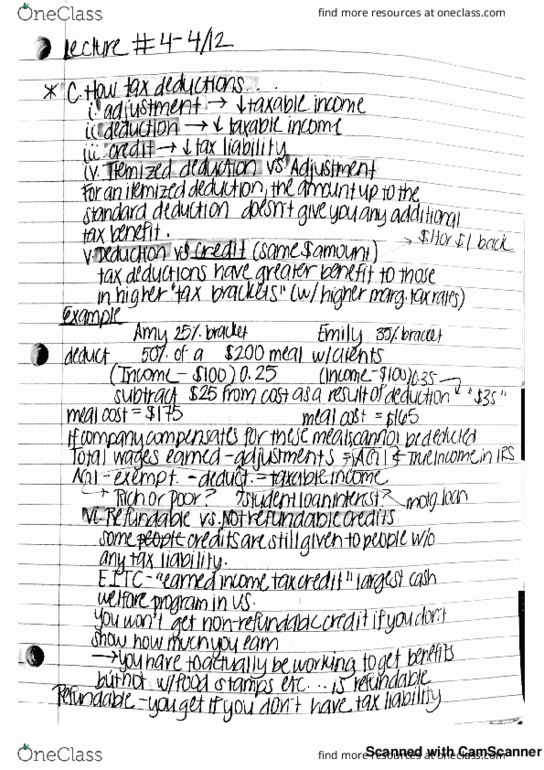 OneClass
find more resources at oneclass.com
Lecture #4-4/12
* C. How tax deductions...
i. adjustment → ↓ taxable income
ii. deduction → ↓ taxable income
iii. credit → ↓ tax liability
iv. Itemized deduction vs Adjustment
For an itemized deduction, the amount up to the
standard deduction doesn't give you any additional
tax benefit.
→ $1 for $1 back
v. Deduction vs credit (same $ amount)
tax deductions have greater benefit to those
in higher "tax brackets" (w/ higher marg. tax rates)
Example
Amy 25% bracket Emily 35% bracket
deduct 50% of a $200 meal w/clients
(Income - $100) 0.25 (Income - $100) 0.35
subtract $25 from cost as a result of deduction "$35"
meal cost = $175 meal cost = $165
If company compensates for these meals, cannot be deducted
Total wages earned - adjustments = AGI True Income in IRS
AGI - exempt. - deduct. = taxable income
→ Rich or poor? ? student loan interest? morg. loan
VI. Refundable vs. Not refundable credits
some people credits are still given to people w/o
any tax liability.
EITC - "earned income tax credit" largest cash
welfare program in US.
You won't get non-refundable credit if you don't
show how much you earn
→ you have to actually be working to get benefits
but not w/ food stamps etc... is refundable
Refundable - you get if you don't have tax liability
OneClass
find more resources at oneclass.com
Scanned with CamScanner